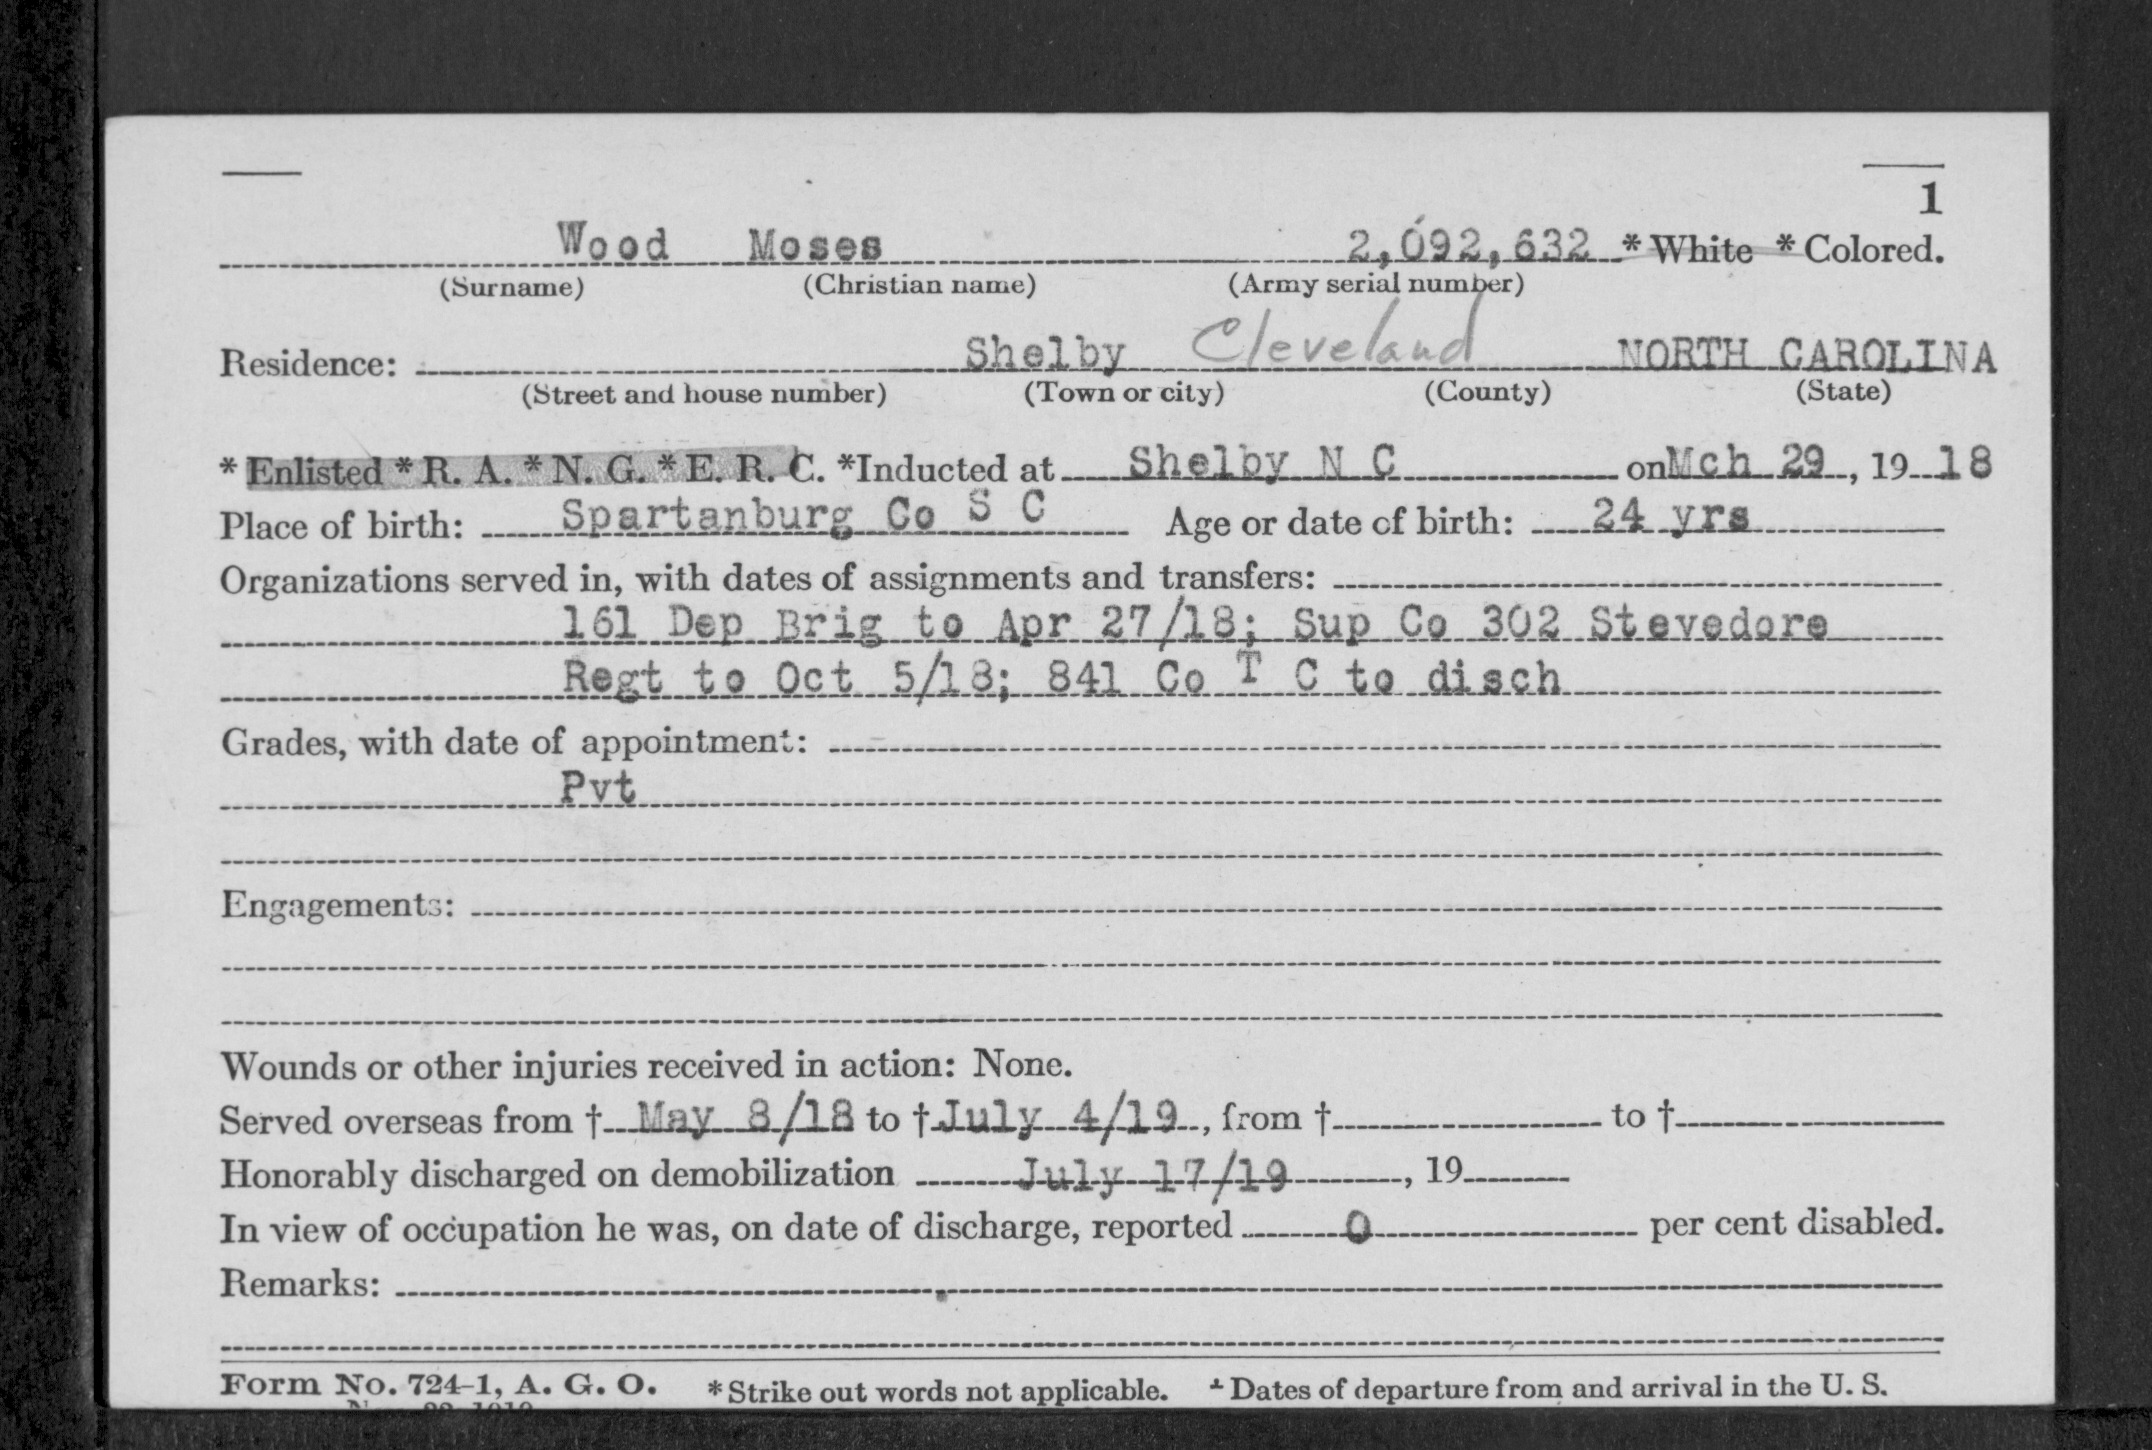 1
Wood Moses 2,092,632 * White * Colored.
(Surname) (Christian name) (Army serial number)
Residence: Shelby Cleveland NORTH CAROLINA
(Street and house number) (Town or city) (County) (State)
* Enlisted * R. A. * N. G. * E. R. C. *Inducted at Shelby N C on Mch 29, 19 18
Place of birth: Spartanburg Co S C Age or date of birth: 24 yrs
Organizations served in, with dates of assignments and transfers:
161 Dep Brig to Apr 27/18; Sup Co 302 Stevedore
Regt to Oct 5/18; 841 Co T C to disch
Grades, with date of appointment:
Pvt
Engagements:
Wounds or other injuries received in action: None.
Served overseas from † May 8/18 to † July 4/19, from † to †
Honorably discharged on demobilization July 17/19, 19
In view of occupation he was, on date of discharge, reported 0 per cent disabled.
Remarks:
Form No. 724-1, A. G. O. * Strike out words not applicable. † Dates of departure from and arrival in the U. S.